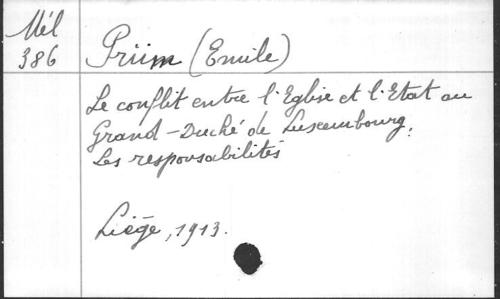 Mél
386
Prüm (Emile)
Le conflit entre l'Eglise et l'Etat au
Grand-Duché de Luxembourg.
Les responsabilités
Liége, 1913.